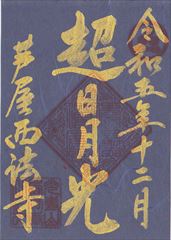 令和五年十二月
超日月光
芦屋西法寺